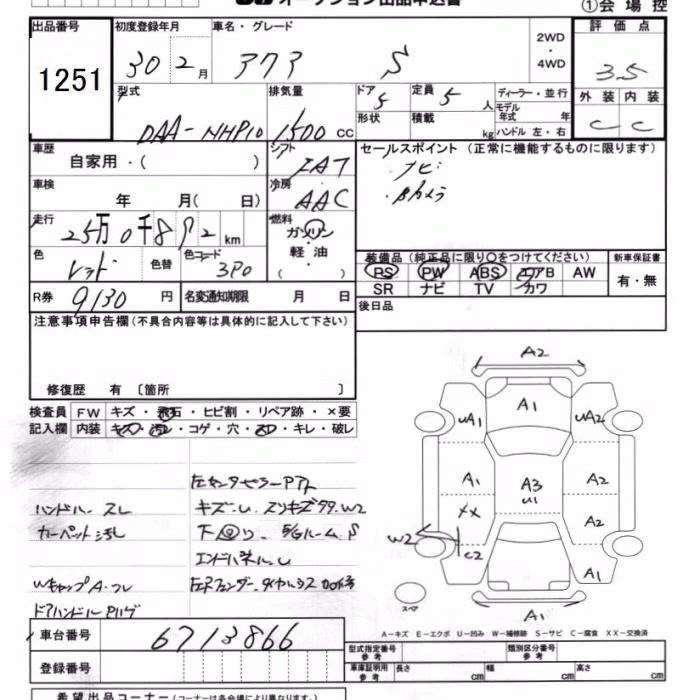 ①会場控
出品番号
1251
初度登録年月
30 2月
車名・グレード
アクア S
2WD
・
4WD
評価点
3.5
外装 内装
C C
型式
DAA-NHP10
排気量
1500 CC
ドア
5
形状
定員
5 人
積載
kg
ディーラー・並行
モデル年式 年
ハンドル 左・右
車歴
自家用・( )
シフト
IAT
車検
年 月( 日)
冷房
AAC
走行
25万0千892 km
燃料
ガソリン
軽油
( )
色
レッド
色替
色コード
3P0
R券
9130 円
名変通知期限 月 日
セールスポイント (正常に機能するものに限ります)
・ナビ
・Bカメラ
装備品(純正品に限り〇をつけてください)
PS PW ABS エアB AW
SR ナビ TV カワ
新車保証書
有・無
後日品
注意事項申告欄(不具合内容等は具体的に記入して下さい)
修復歴 有〔箇所 〕
検査員
記入欄
FW キズ・飛石・ヒビ割・リペア跡・×要
内装 キズ・汚レ・コゲ・穴・スレ・キレ・破レ
ハンドル スレ
カーペット汚れ
WキャップA・ワレ
キズ・U
下回り
A2
A1
uA1
uA2
A1
A3
U1
A2
XX
A2
W2
C2
A1
A1
スペア
A-キズ E-エクボ U-凹み W-補修跡 S-サビ C-腐食 XX-交換済
車台番号
6713866
登録番号
型式指定番号
参考
類別区分番号
参考
車庫証明用
参考
長さ cm
幅 cm
高さ cm
希望出品コーナー(コーナーは各会場により異なります。)